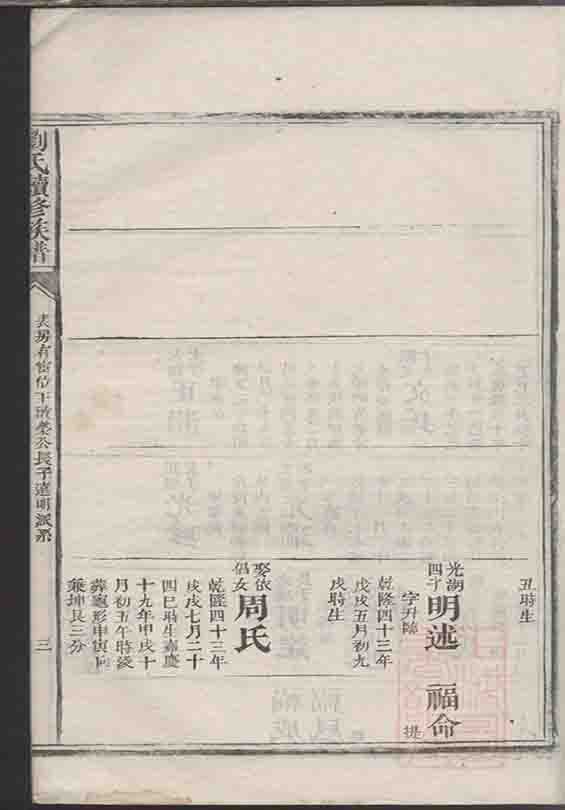 丑時生
光湖四子
明述 福命
字升陽
提
乾隆四十三年
戊戌五月初九
戌時生
娶依倡女
周氏
乾隆四十三年
戊戌七月二十
四巳時生嘉慶
十九年甲戌十
月初五午時歿
葬寵形申寅向
兼坤艮三分
劉氏續修族譜
公長子達明派系
三